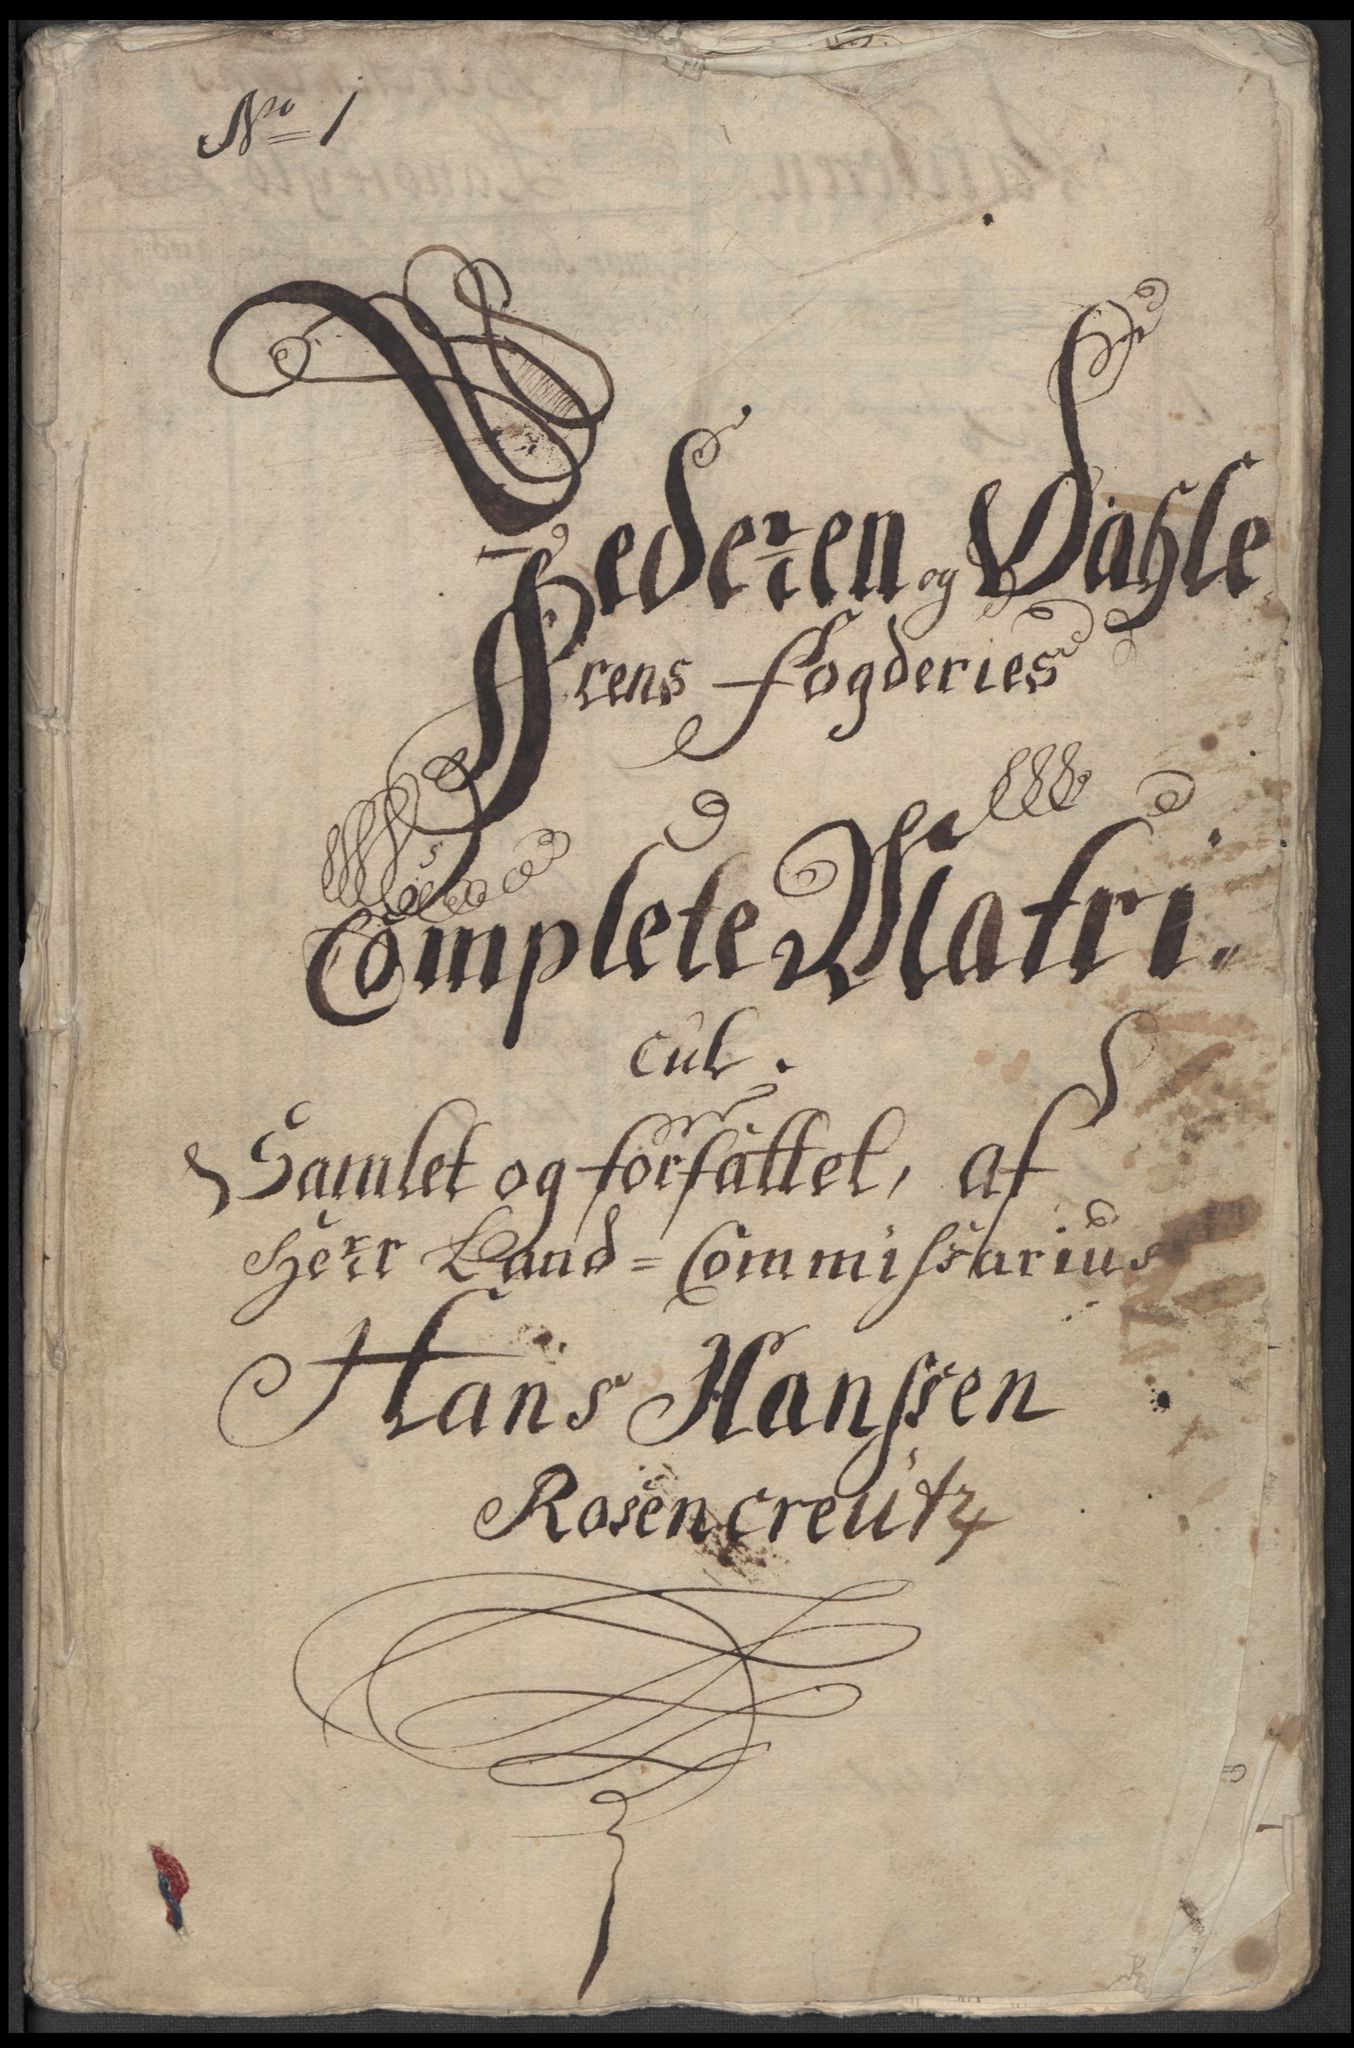 No 1
Jederen og Dahle
rens Fogderies
Complete Matri.
cul.
Samlet og forfattet, af
Herr Land=Commissarius
Hans Hanssen
Rosencreutz